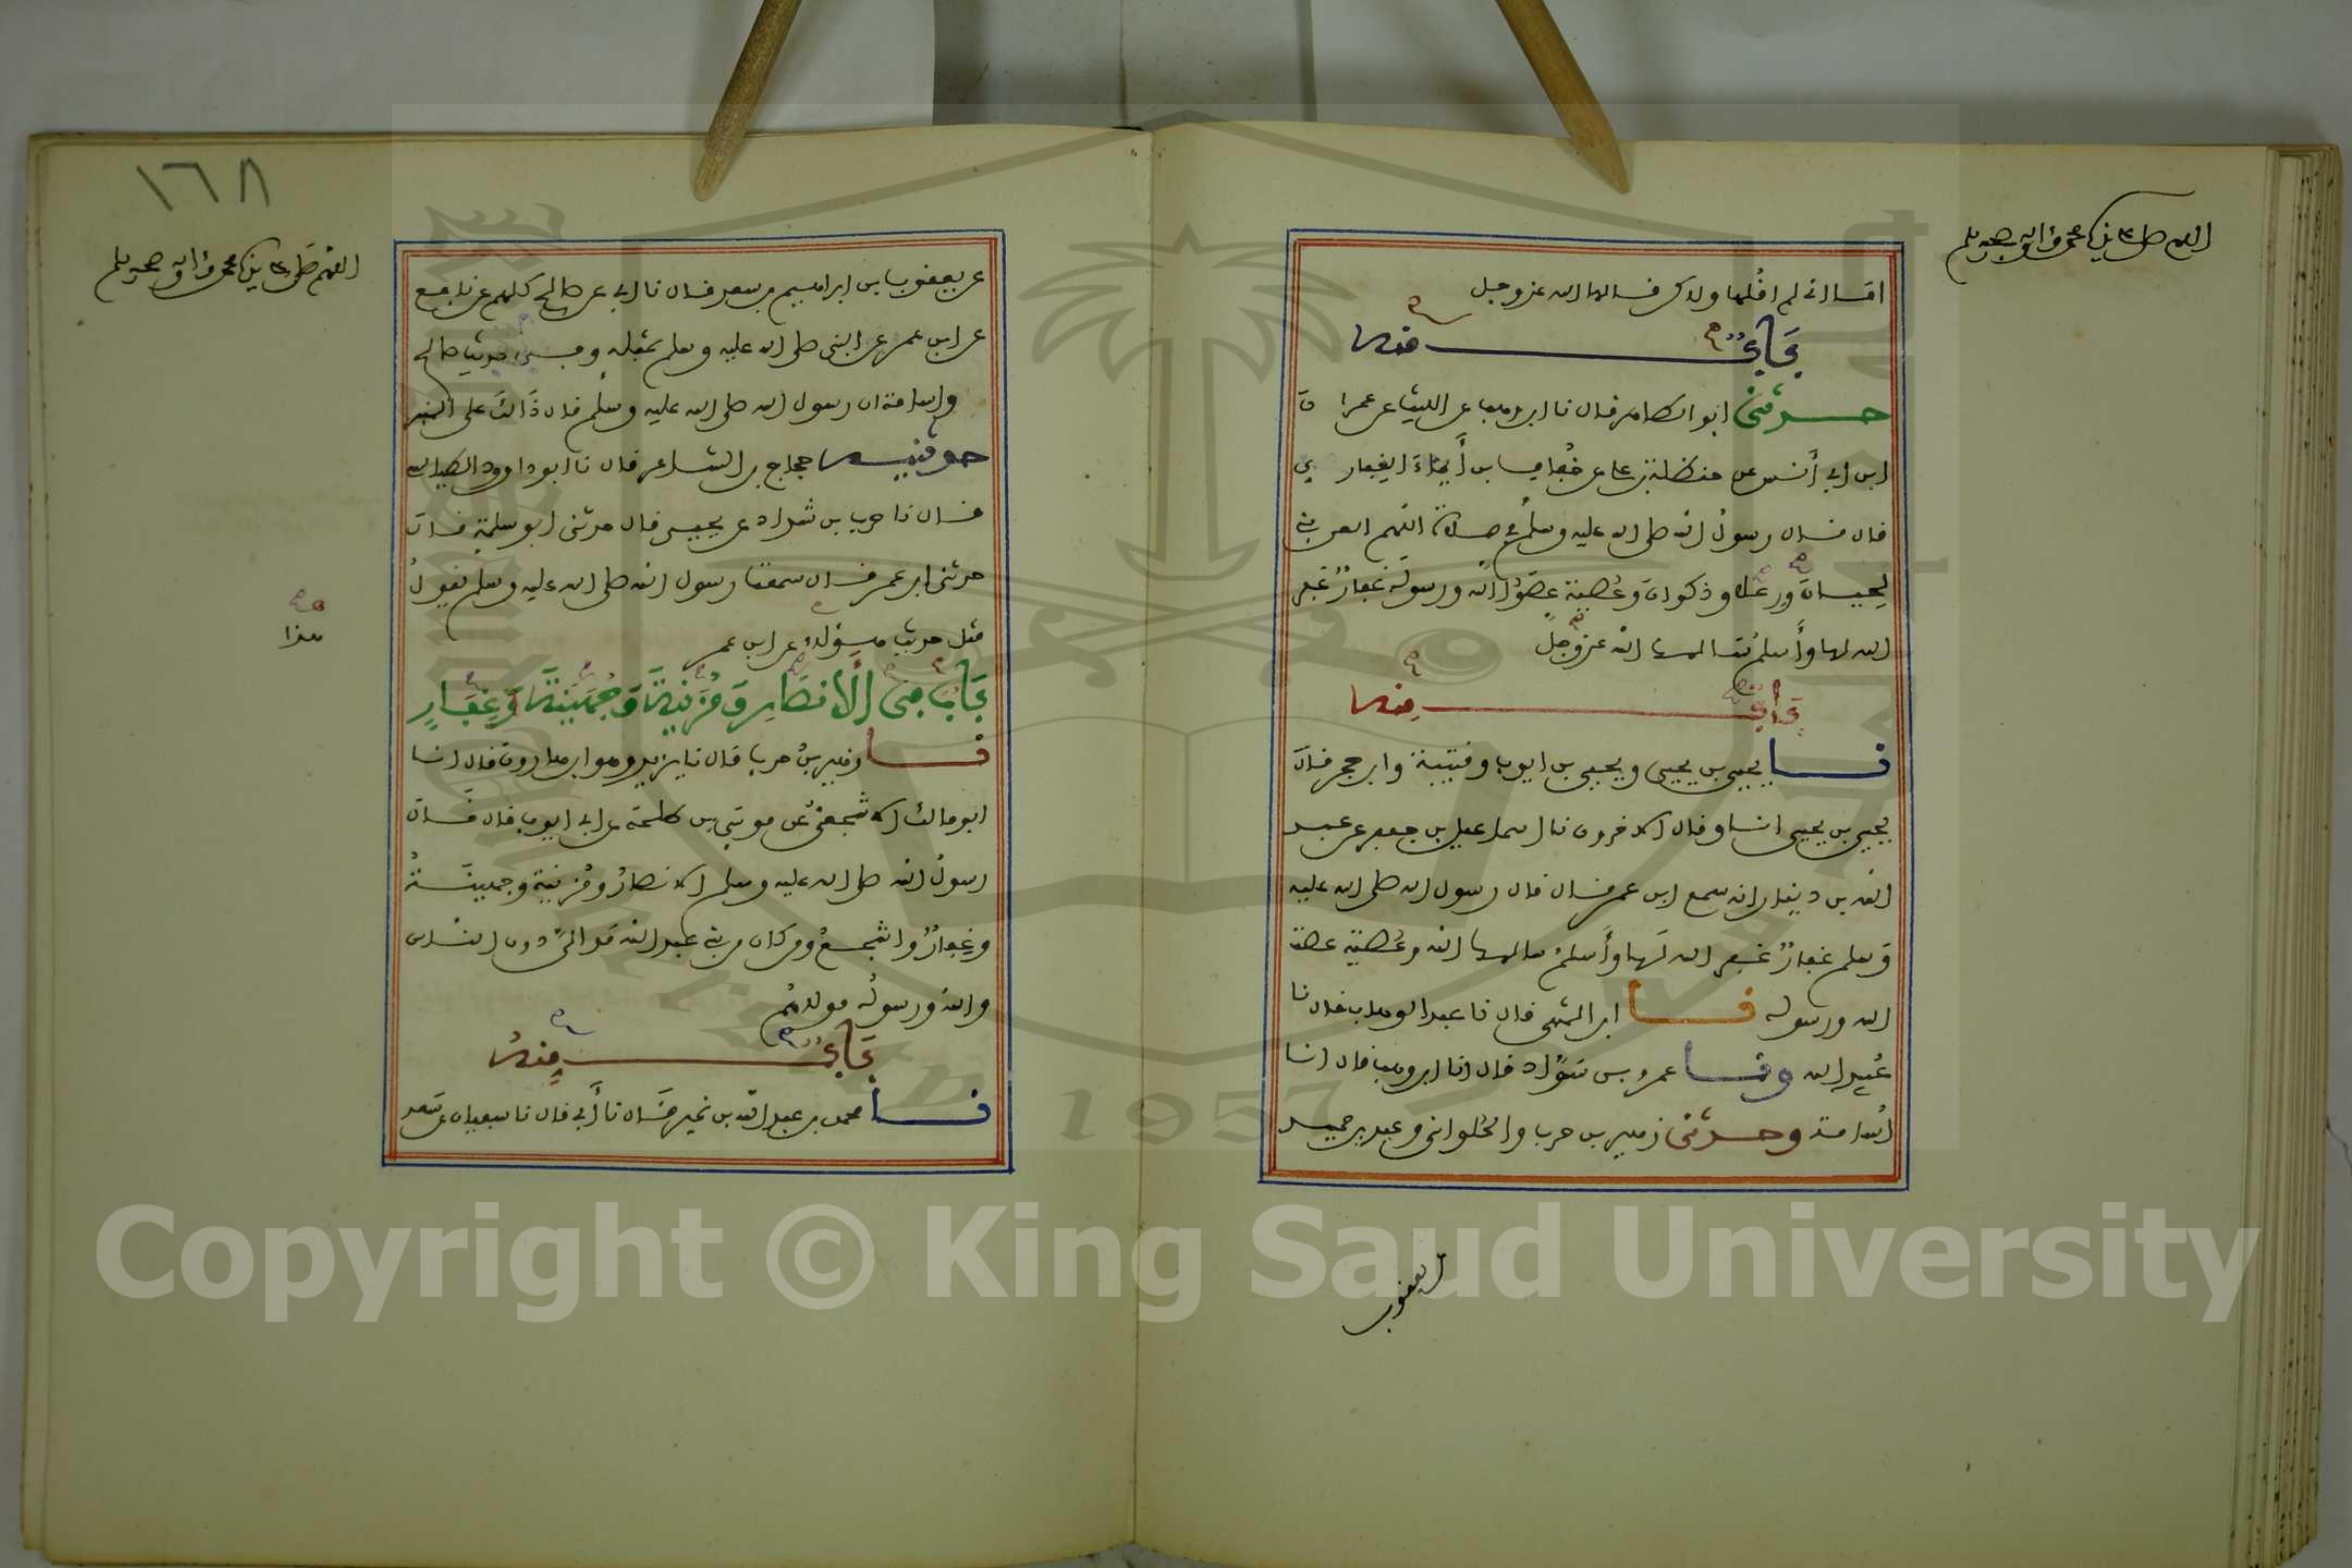 اللهم صل على سيدنا محمد وءاله وصحبه وسلم
اما اني لم اقلها ولاكن قالها الله عز وجل
باب منه
حدثني ابو الطاهر قال نا ابن وهب عن الليث عن عمران
ابن ابي أنس عن حنظلة بن علي عن خُفاف بن أيماء الغفاري
قال قال رسول الله صلى الله عليه وسلم في صلاة اللهم العن بني
لحيان ورعلا وذكوان وعُصية عصوا الله ورسوله غفارٌ غفر
الله لها وأسلمُ سالمها الله عز وجل
باب منه
نا يحيى بن يحيى ويحيى بن ايوب وقتيبة وابن حجر قال
يحيى بن يحيى انا وقال الاخرون نا اسماعيل بن جعفر عن عبد
الله بن دينار انه سمع ابن عمر قال قال رسول الله صلى الله عليه
وسلم غفارٌ غفر الله لها وأسلمُ سالمها الله وعُصيّة عصت
الله ورسوله نا ابن المثنى قال نا عبد الوهاب قال نا
عُبيد الله ونا عمرو بن سَوّاد قال انا ابن وهب قال انا
أسامة وحدثني زهير بن حرب والحُلواني وعبد بن حميد
عن يعقوب
١٦٨
اللهم صل على سيدنا محمد وءاله وصحبه وسلم
عن يعقوب بن ابراهيم بن سعد قال نا ابي عن صالح كلهم عن نافع
عن ابن عمر عن النبي صلى الله عليه وسلم بمثله وفي حديث صالح
وأسامة ان رسول الله صلى الله عليه وسلم قال ذالك على المنبر
حدثنيه حجاج بن الشاعر قال نا ابو داوود الطيالسي
قال نا حرب بن شداد عن يحيى قال حدثني ابو سلمة قال
حدثني ابن عمر قال سمعت رسول الله صلى الله عليه وسلم يقول
مثل حديث هؤلاء عن ابن عمر
هذا
باب من الأنصار ومُزينة وجُهينة وغفار
نا زهير بن حرب قال نا يزيد وهو ابن هارون قال انا
ابو مالك الاشجعي عن موسى بن طلحة عن ابي ايوب قال قال
رسول الله صلى الله عليه وسلم الانصارُ ومُزينة وجهينةُ
وغِفارٌ واشجعُ ومن كان من بني عبد الله مَواليَّ دون الناس
والله ورسوله مولاهُم
باب منه
نا محمد بن عبد الله بن نمير قال نا أبي قال نا سفيان عن سعد
Copyright © King Saud University
1957